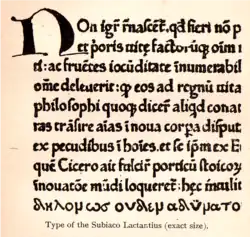 NOn igr̄ rnascēt. qđ fieri nō p
et p̄oris uitę factorūq; oīm r
ti: ac fruētes iocūditate īnumerabil
om̄e deleuerit: ꝙ eos ad regnū uita
philosophi quoq; dicer̄ aliqd conat
ras trāsire aīas ī noua corꝑa disput
ex pecudibus ī hoīes. et se īpm̄ ex E
quę Cicero ait fulcir̄ porticū stoicoꝝ
inouatōe mūdi loqueret: hęc
δηλομως ουδεμ αδυματο
Type of the Subiaco Lactantius (exact size).